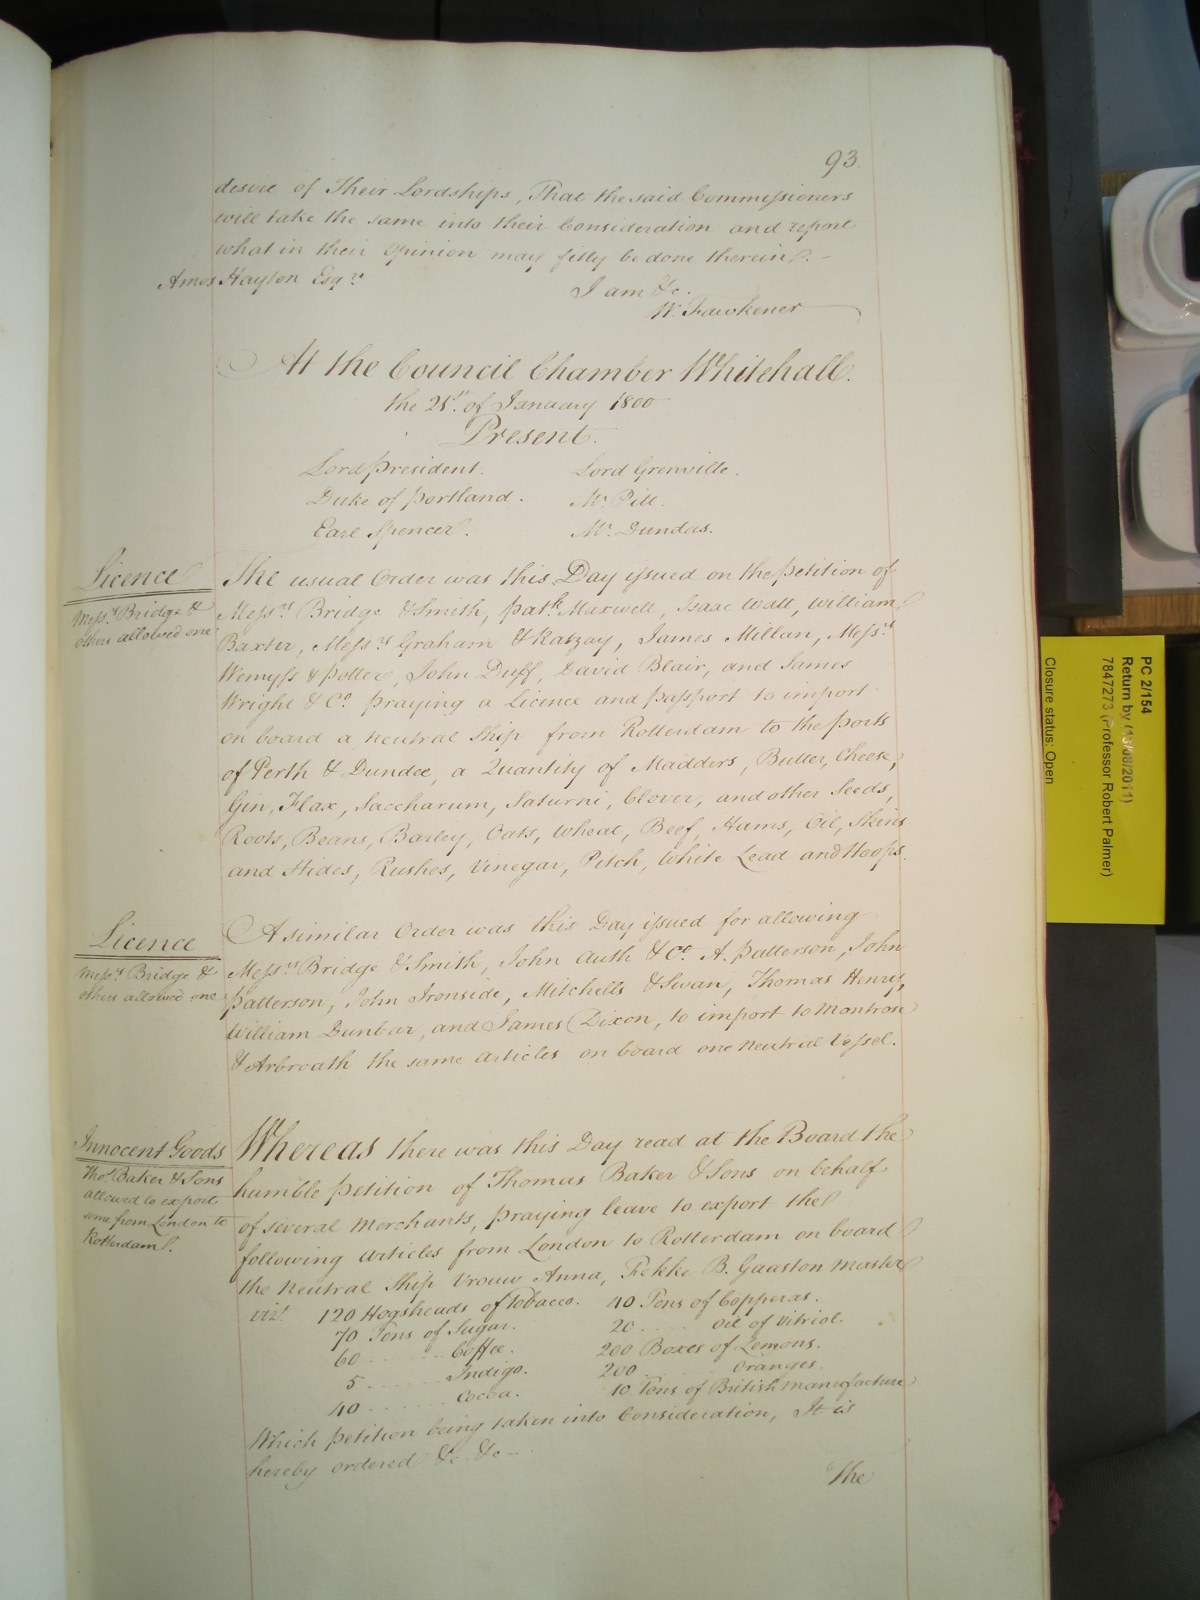 93.
desire of Their Lordships, That the said Commissioners
will take the same into their Consideration and report
what in their Opinion may fitly be done therein. –
Amos Hayton Esqr.
I am &c.
W. Fawkener
At the Council Chamber Whitehall.
the 21st. of January 1800
Present.
Lord President. Lord Grenville.
Duke of Portland. Mr. Pitt.
Earl Spencer. Mr. Dundas.
Licence
Messrs. Bridge &
others allowed one
The usual Order was this Day issued on the Petition of
Messrs. Bridge & Smith, Patk. Maxwell, Isaac Watt, William
Baxter, Messrs Graham & Ramsay, James Millan, Messrs.
Wemyss & Potter, John Duff, David Blair, and James
Wright & Co. praying a Licence and Passport to import
on board a neutral Ship from Rotterdam to the Ports
of Perth & Dundee, a Quantity of Madders, Butter, Cheese,
Gin, Flax, Saccharum, Saturni, Clover, and other Seeds,
Roots, Beans, Barley, Oats, Wheat, Beef, Hams, Oil, Skins
and Hides, Rushes, Vinegar, Pitch, White Lead and Hoops.
Licence
Messrs. Bridge &
others allowed one
A similar Order was this Day issued for allowing
Messrs. Bridge & Smith, John Auth & Co. A. Patterson, John
Patterson, John Ironside, Mitchells & Swan, Thomas Henry,
William Dunbar, and James Dixon, to import to Montrose
& Arbroath the same Articles on board one Neutral Vessel.
Innocent Goods
Thos. Baker & Sons
allowed to export
some from London to
Rotterdam.
Whereas there was this Day read at the Board the
humble Petition of Thomas Baker & Sons on behalf
of several Merchants, praying leave to export the
following Articles from London to Rotterdam on board
the Neutral Ship Vrouw Anna, Fekke B. Gauston Master
vizt. 120 Hogsheads of Tobacco. 40 Tons of Copperas.
70 Tons of Sugar. 20 ..... Oil of Vitriol.
60 ........ Coffee. 200 Boxes of Lemons.
5 ........ Indigo. 200 ........ Oranges.
40 ........ Cocoa. 10 Tons of British manufacture
Which Petition being taken into Consideration, It is
hereby ordered &c. &c –
The
PC 2/154
Return by (13/08/2011)
7847273 (Professor Robert Palmer)
Closure status: Open